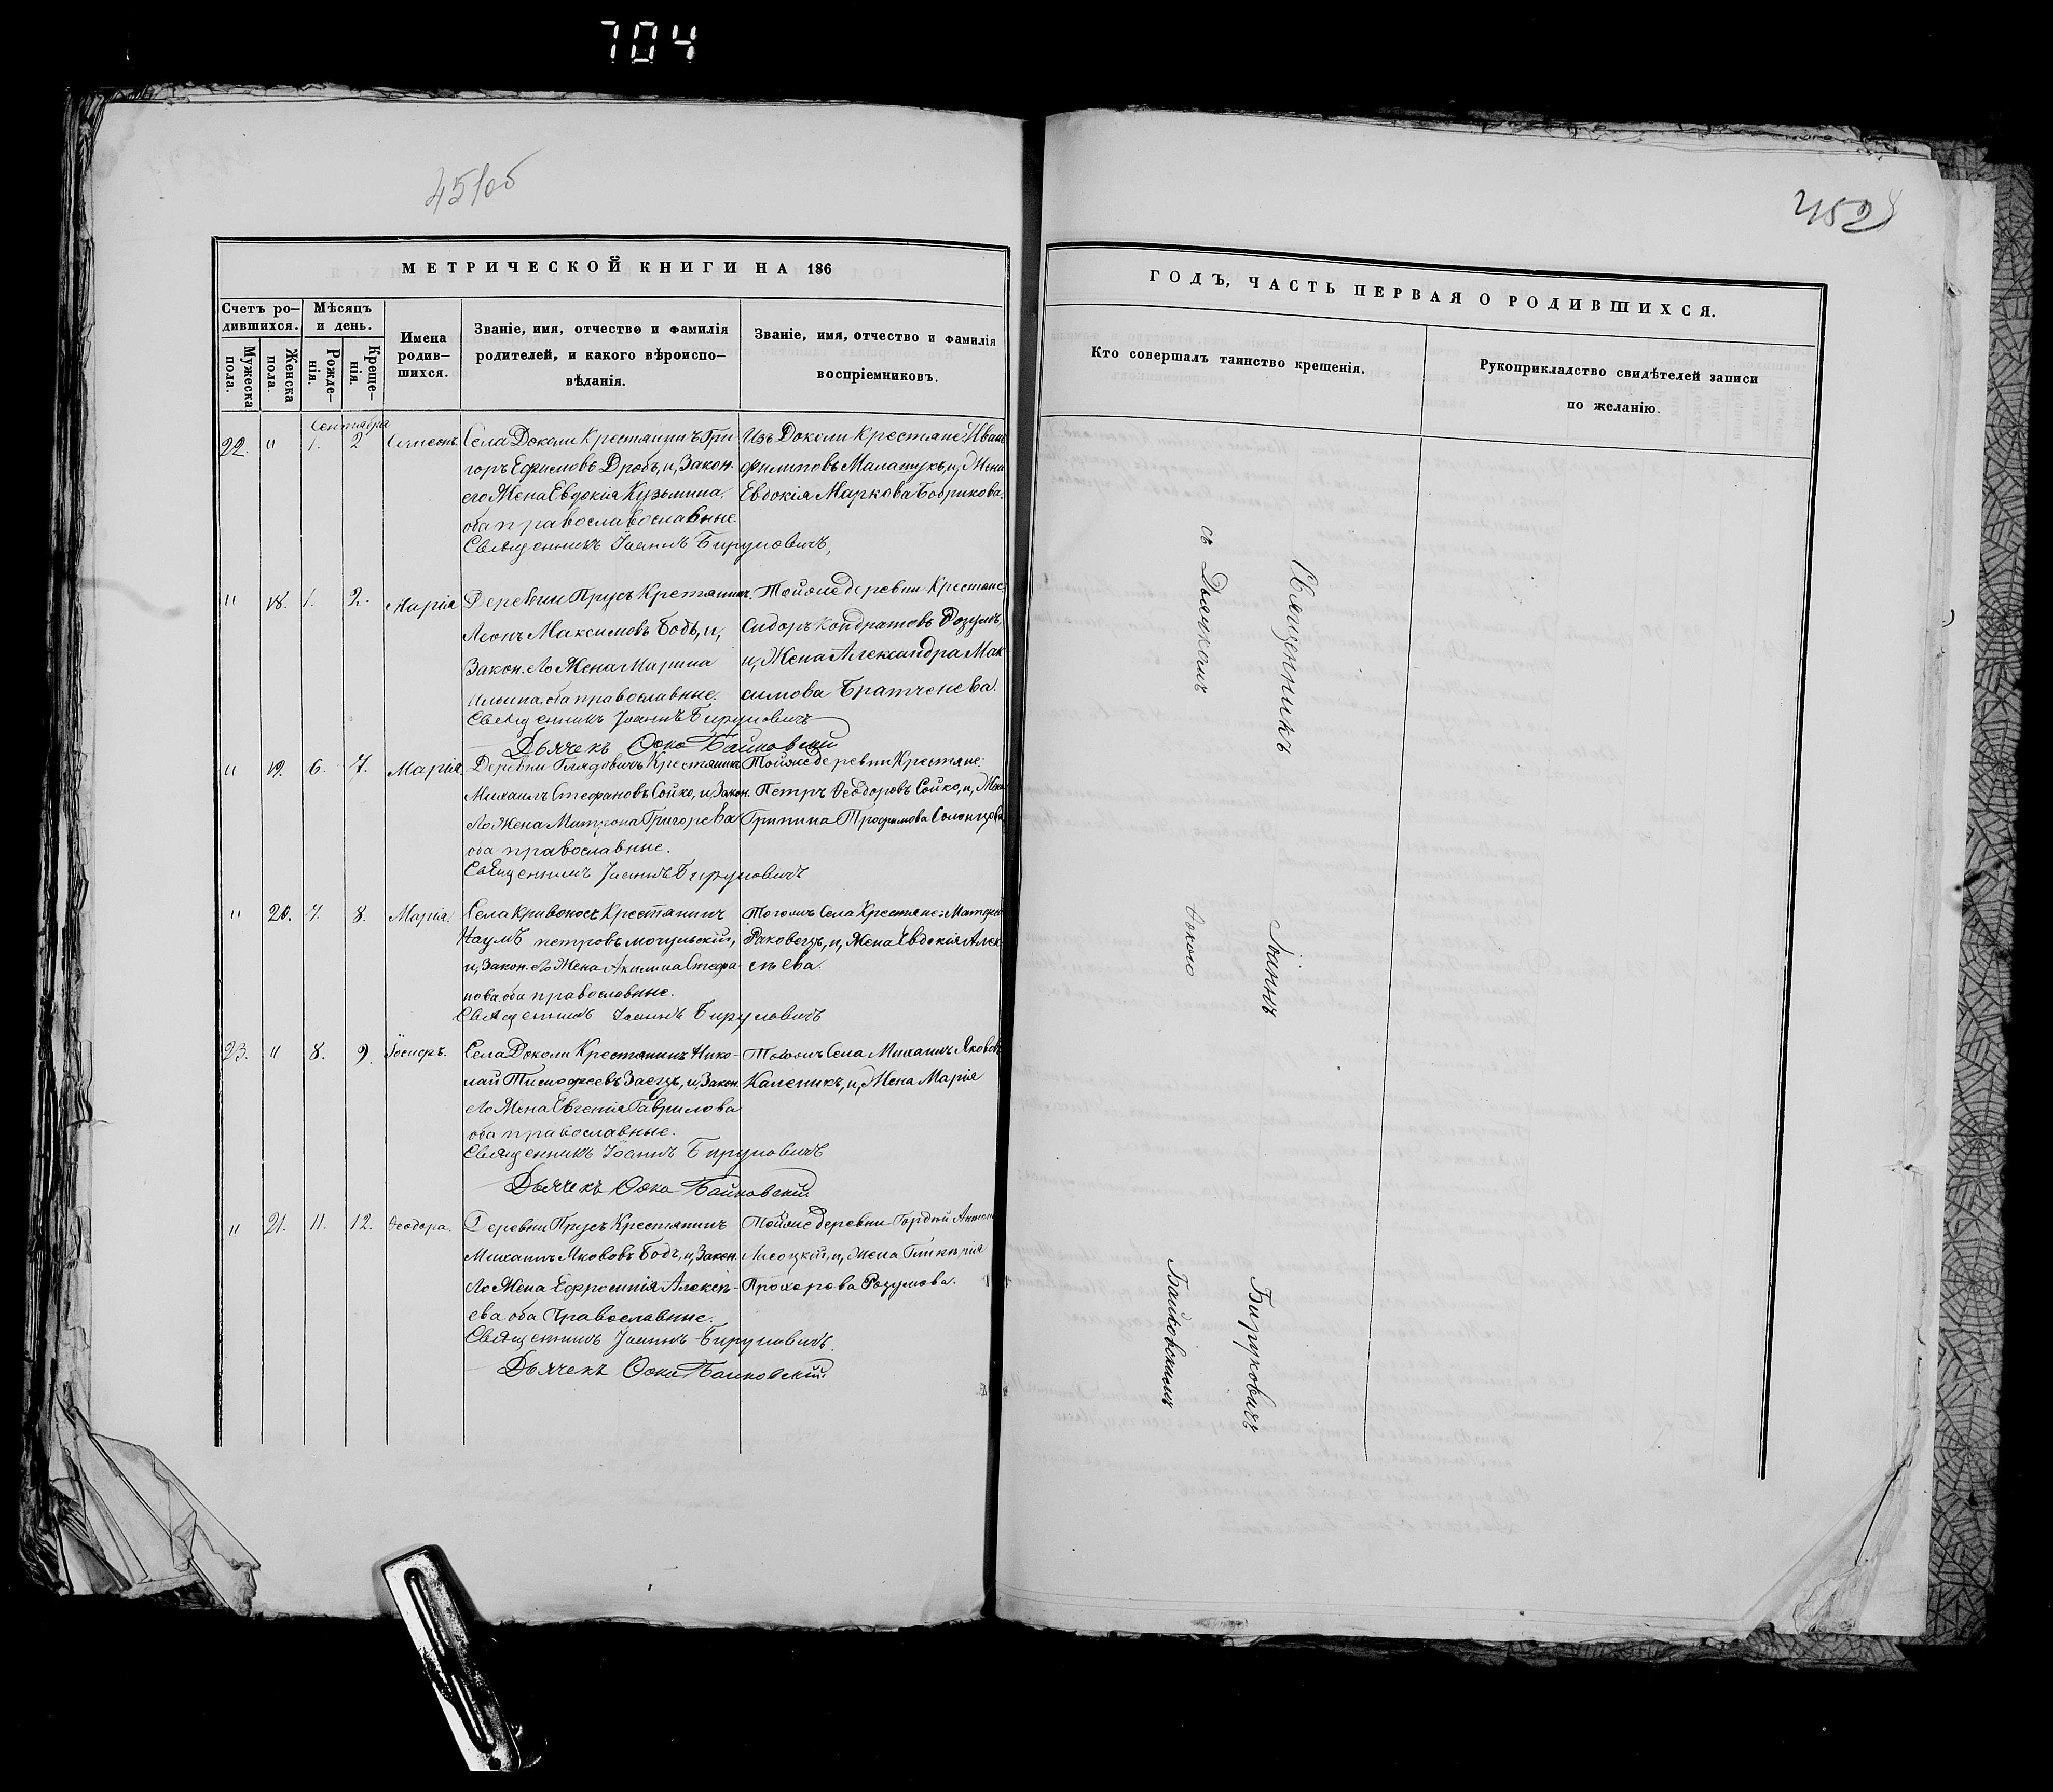 704
451об
452
МЕТРИЧЕСКОЙ КНИГИ НА 186
Счетъ ро-
дившихся.
Мужеска
пола.
Женска
пола.
Мѣсяцъ
и день.
Рожде-
нія.
Креще-
нія.
Имена
родив-
шихся.
Званіе, имя, отчество и фамилія
родителей, и какого вѣроиспо-
вѣданія.
Званіе, имя, отчество и фамилія
воспріемниковъ.
Сентября
22. " 1. 2 Симеонъ.
Села Доколи Крестянинъ Гри-
горъ Ефимовъ Дробъ, и, Закон.
его Жена Евдокія Кузьмина,
оба православославные.
Священникъ Іоаннъ Бируковичъ,
Изъ Доколи Крестяне: Иванъ
Филиповъ Малашукъ, и, Жена
Евдокія Маркова Бобрикова.
" 18. 1. 2. Марія
Деревни Прусъ Кретянинъ.
Леонъ Максимовъ Бобъ, и,
Закон. Его Жена Марина
Ильина, оба православные.
Священникъ Іоаннъ Бируковичъ
Дьячекъ Ѳока Байковскій
Тойже деревни Крестяне
Сидоръ Кондратовъ Розумъ,
и, Жена Александра Мак
симова Братченева.
" 19. 6. 7. Марія
Деревни Глядовичъ Крестянинъ
Михаилъ Стефановъ Сойко, и, Закон.
Его Жена Матрона Григорева
оба православные.
Священникъ Іоаннъ Бируковичъ
Тойже деревни Крестяне:
Петръ Ѳеодоровъ Сойко, и, Жена
Грипина Трофимова
" 20. 7. 8. Марія.
Села Кривоносъ Крестянинъ
Наумъ петровъ мочульскій,
и, Закон. Его Жена Акилина Стефа-
нова, оба православные.
Священникъ Іоаннъ Бируковичъ
Тогожъ Села Крестяне: Матфей
Раковецъ, и, Жена Евдокія Алек-
сѣева.
23. " 8. 9. Іосифъ.
Села Доколи Крестянинъ Нико-
лай Тимофеевъ Заецъ, и, Закон.
Его Жена Евгенія Гаврилова
оба православные.
Священникъ Іоаннъ Бируковичъ
Дьячекъ Ѳока Байковскій.
Тогожъ Села Михаилъ Яковов
Каленикъ, и, Жена Марія
" 21. 11. 12. Ѳеодора.
Деревни Прусъ Крестянинъ
Михаилъ Якововъ Бобъ, и, Закон.
Его Жена Ефросинія Алексѣ-
ева оба Православные.
Священникъ Іоаннъ Бируковичъ.
Дьячекъ Ѳока Байковскій.
Тойже деревни Гордѣй Антон
Лисоцкій, и, Жена Гликѣрія
Прохорова Розумова.
ГОДЪ, ЧАСТЬ ПЕРВАЯ О РОДИВШИХСЯ.
Кто совершалъ таинство крещенія.
Рукоприкладство свидѣтелей записи
по желанію.
Священникъ Іоаннъ Бируковичъ
съ Дьячкомъ Ѳокою Байковскимъ